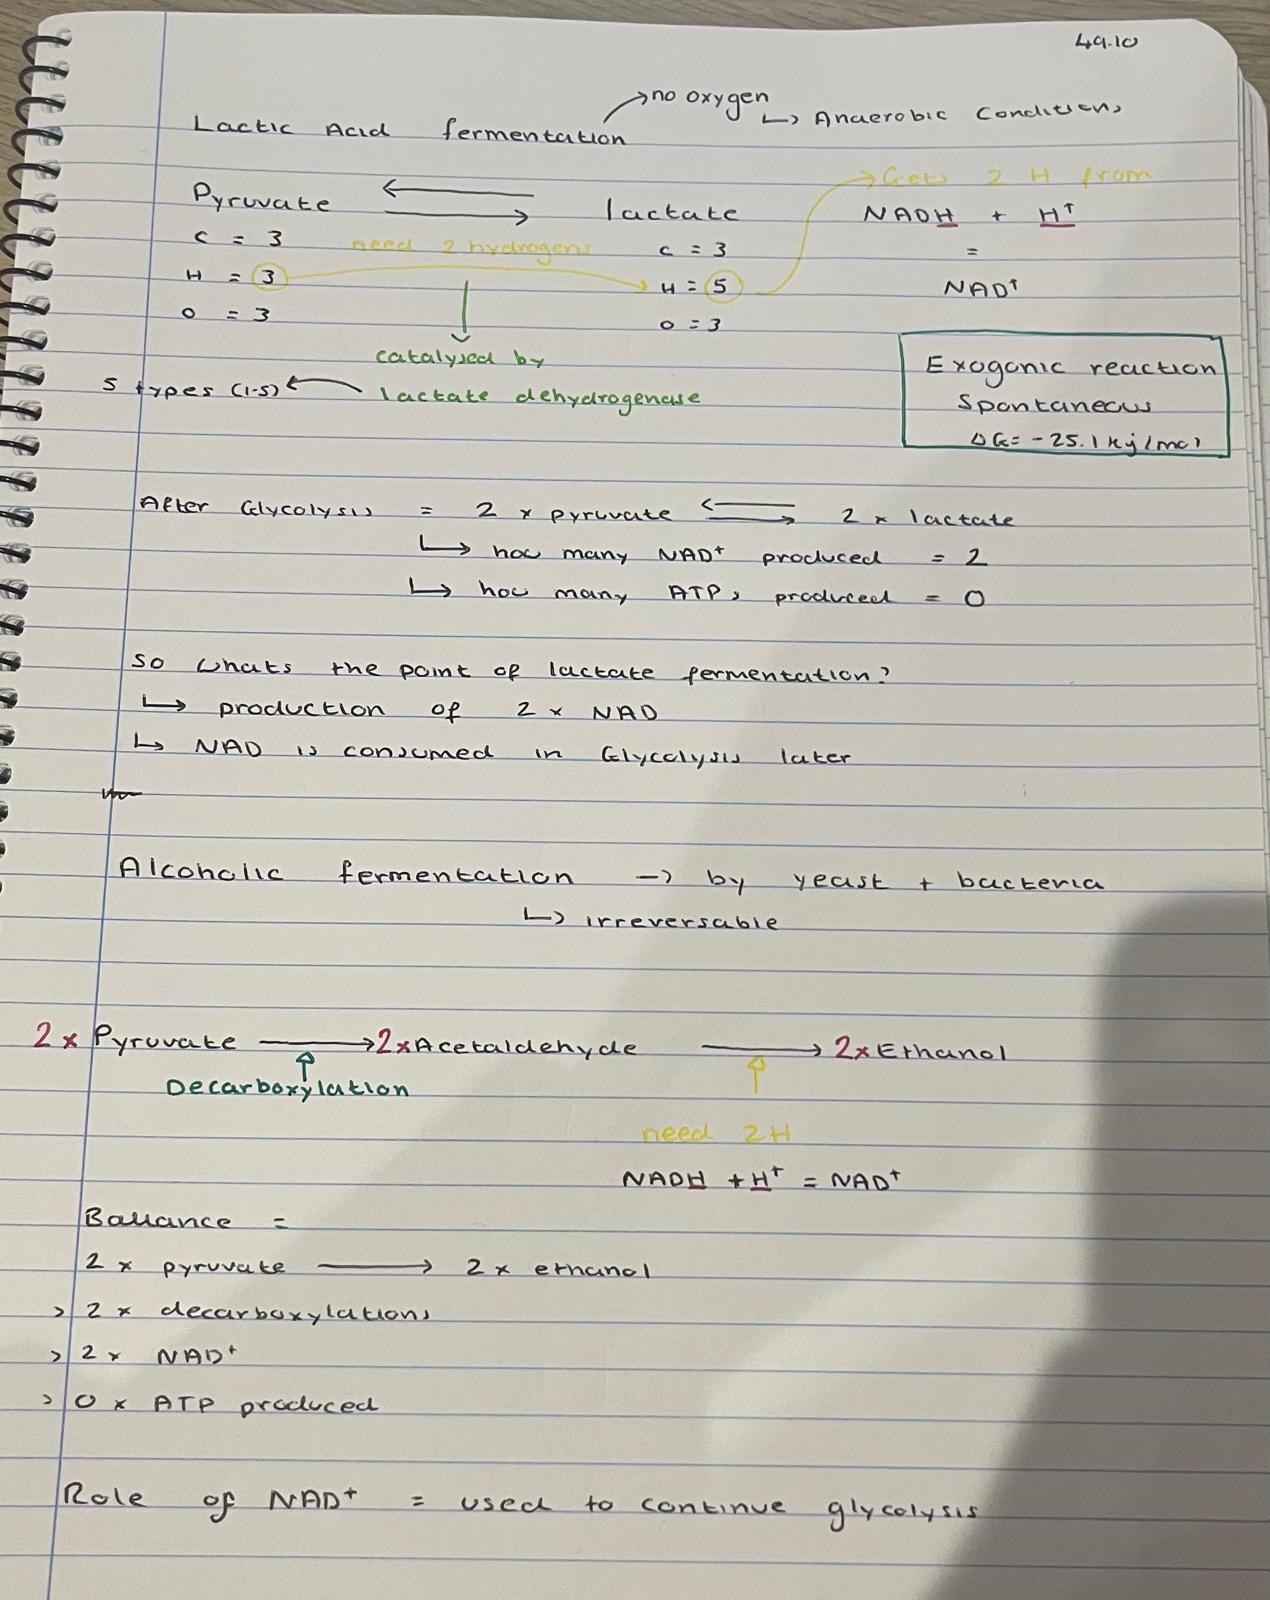 49.10
Lactic Acid fermentation → no oxygen ↳ Anaerobic Conditions
Pyruvate ⇌ lactate
→ Gets 2 H from
NADH + H⁺
=
NAD⁺
C = 3
H = 3
O = 3
need 2 hydrogens
C = 3
H = 5
O = 3
catalysed by
lactate dehydrogenase
5 types (1-5)
Exogonic reaction
Spontaneous
ΔG = -25.1 kj/mol
After Glycolysis = 2 x pyruvate ⇌ 2 x lactate
↳ how many NAD⁺ produced = 2
↳ how many ATPs produced = 0
So whats the point of lactate fermentation?
↳ production of 2 x NAD
↳ NAD is consumed in Glycolysis later
Alcoholic fermentation → by yeast + bacteria
↳ irreversable
2x Pyruvate → 2x Acetaldehyde → 2x Ethanol
Decarboxylation
need 2H
NADH + H⁺ = NAD⁺
Ballance =
2 x pyruvate → 2 x ethanol
> 2 x decarboxylations
> 2 x NAD⁺
> 0 x ATP produced
Role of NAD⁺ = used to continue glycolysis